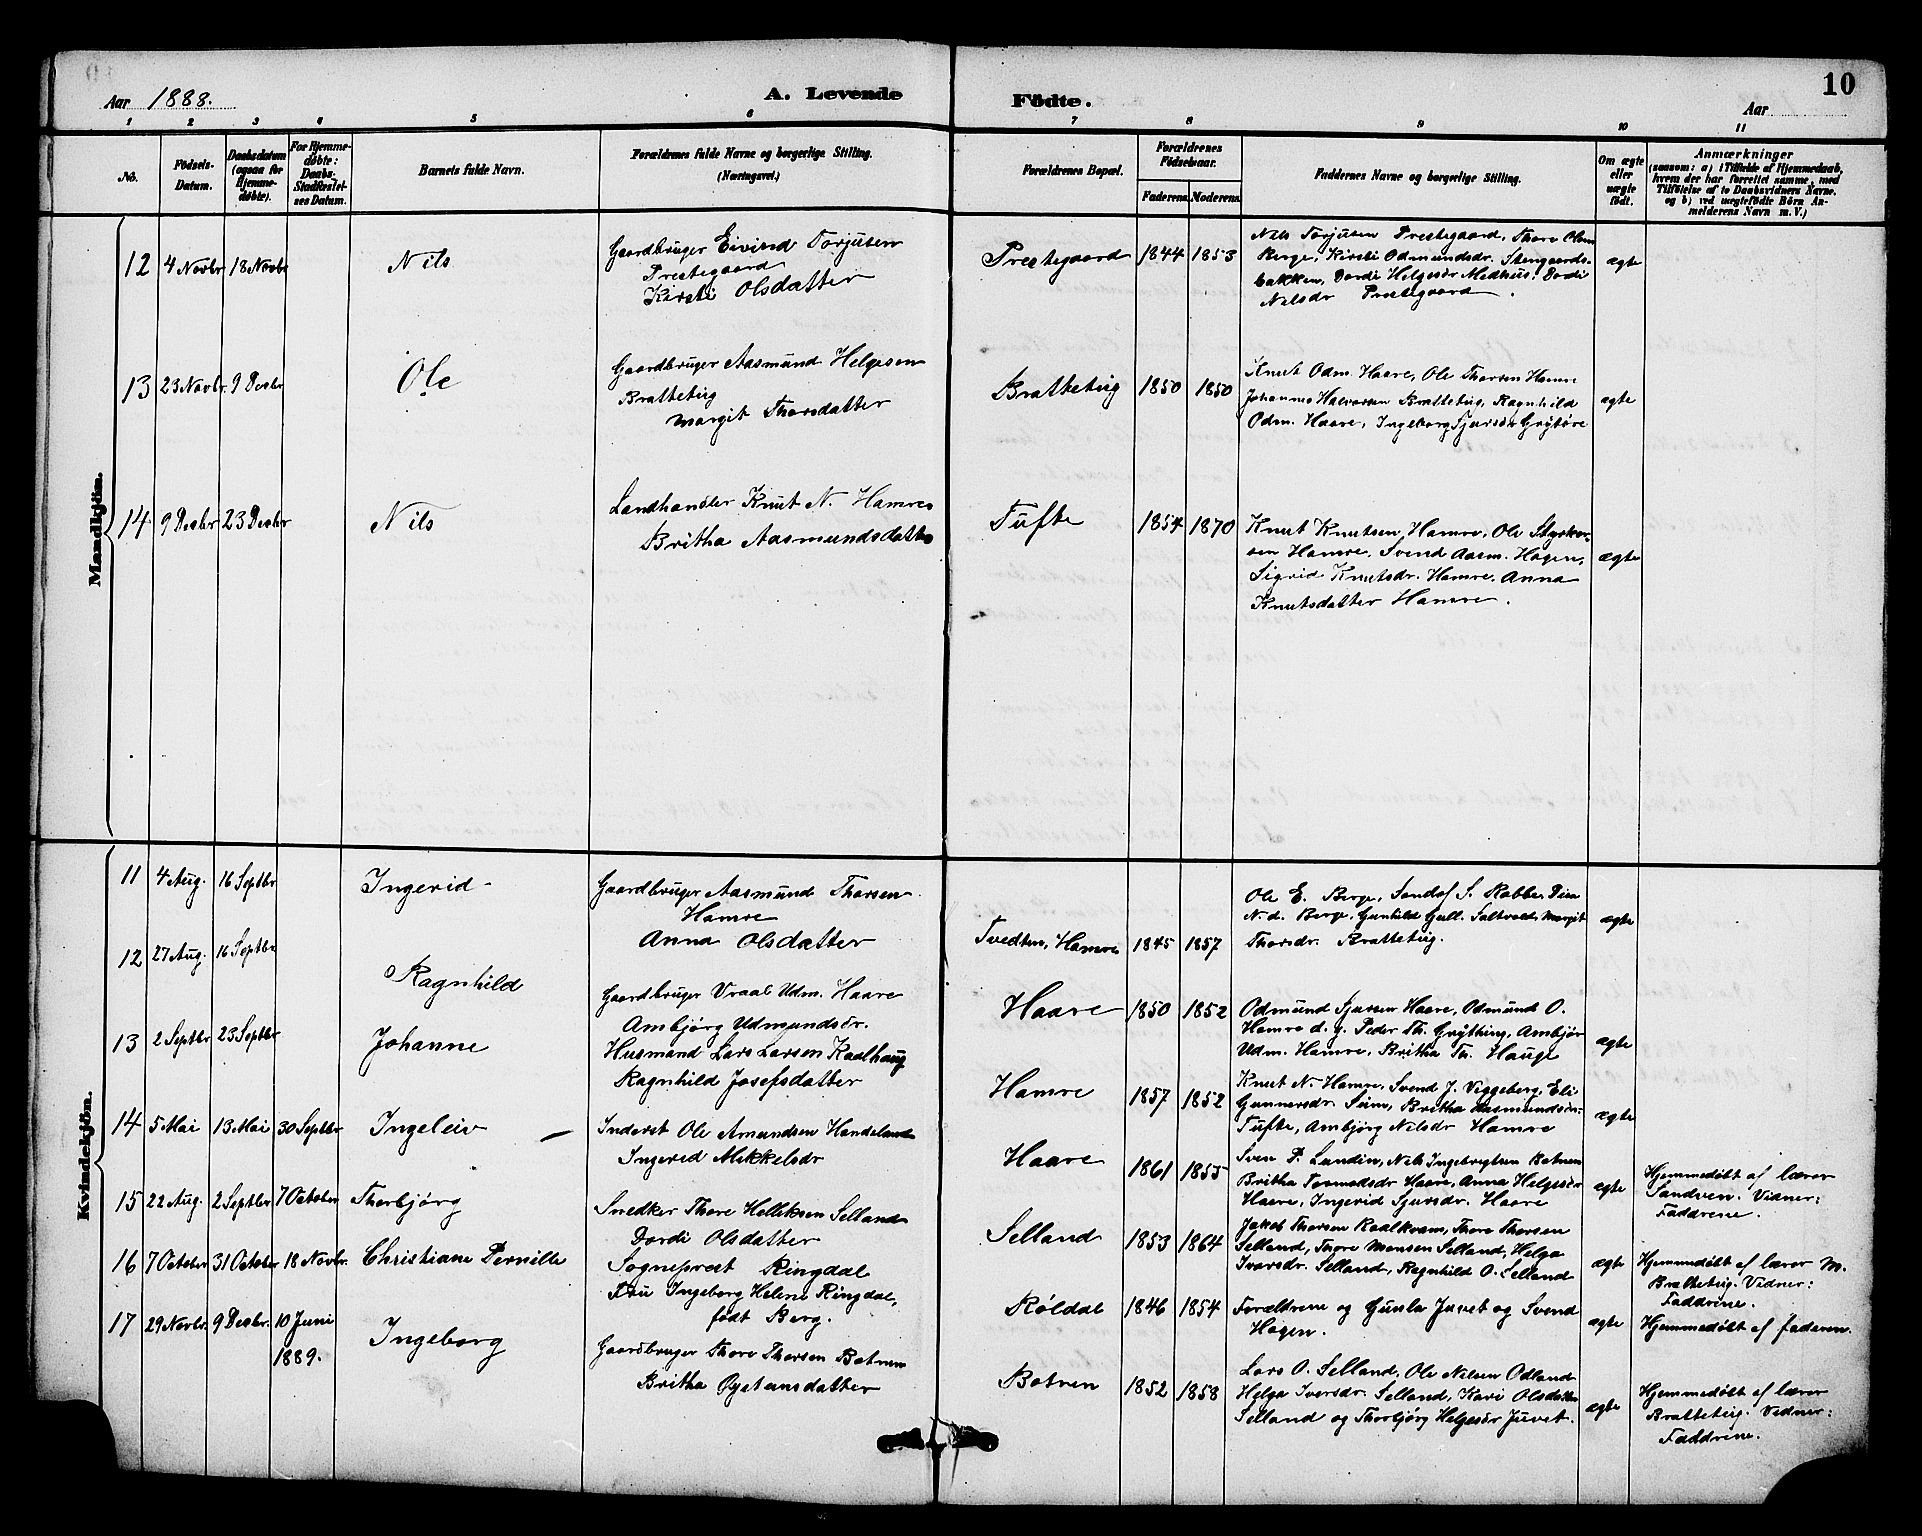 10
Aar 1888. A. Levende Födte. Aar
1 2 3 4 5 6 7 8 9 10 11
No.
Födsels-
Datum.
Daabsdatum
(ogsaa for
Hjemme-
døbte).
For Hjemme-
døbte:
Daabs-
Stadfæstel-
ses Datum.
Barnets fulde Navn.
Forældrenes fulde Navne og borgerlige Stilling.
(Næringsvei.)
Forældrenes Bopæl.
Forældrenes
Fødselsaar.
Faderens. Moderens.
Faddernes Navne og borgerlige Stilling.
Om ægte
eller
uægte
født.
Anmærkninger
(saasom: a) i Tilfælde af Hjemmedaab,
hvem der har forrettet samme, med
Tilføielse af to Daabsvidners Navne.
og b) ved uægtefødte Börn An-
melderens Navn m. V.)
Mandkjön.
12 4 Novbr 18 Novbr Nils
Gaardbruger Eivind Torjusen
Prestegaard
Kirsti Olsdatter
Prestegaard 1844 1853
Nils Torjusen Prestegaard, Thore Olsen
Berge, Kirsti Odmundsdr. Stengaards-
bakken, Dordi Helgesdr Medhus, Dordi
Nelsdr Prestegaard.
ægte
13 23 Novbr. 9 Desbr Ole
Gaardbruger Aasmund Helgesen
Bratteteig
Margit Thorsdatter
Bratteteig 1850 1850
Knut Odm. Haare, Ole Thorsen Hamre
Johannes Halvorsen Bratteteig, Ragnhild
Odm. Haare, Ingeborg Sjursdr Grytøre
ægte
14 9 Desbr 23 Desbr Nils
Landhandler Knut N. Hamre
Britha Aasmundsdatter
Tufte 1854 1870
Knut Knutsen Hamre, Ole Styrkor-
sen Hamre, Svend Aasm. Hagen,
Sigrid Knutsdr. Hamre, Anna
Knutsdatter Hamre.
ægte
Kvindekjön.
11 4 Aug. 16 Septbr Ingerid
Gaardbruger Aasmund Thorsen
Hamre
Anna Olsdatter
Tvedten, Hamre 1845 1857
Ole E. Berge, Sandof S. Rabbe,
N. d. Berge, Gunhild Gull. Saltvold, Margit
Thorsdr. Bratteteig.
ægte
12 27 Aug. 16 Septbr Ragnhild
Gaardbruger Vraal Udm. Haare
Ambjörg Udmundsdr.
Haare 1850 1852
Odmund Sjursen Haare, Odmund O.
Hamre d. y. Peder Th. Grytting, Ambjör
Udm. Hamre, Britha Th. Hauge
ægte
13 2 Septbr 23 Septbr Johanne
Husmand Lars Larsen Kaalhaug
Ragnhild Josefsdatter
Hamre 1857 1852
Knut N. Hamre, Svend J. Veggeberg, Eli
Gunnersdr Seim, Britha Aasmundsdr.
Tufte, Ambjörg Nelsdr Hamre
ægte
14 5 Mai 13 Mai 30 Septbr Ingeleiv
Inderst Ole Amundsen Handeland
Ingerid Mikkelsdr
Haare 1861 1855
Sven P. Lundin, Nils Ingebrigtsen Botnen
Britha Tormodsdr Haare, Anna Helgesdr
Haare, Ingerid Sjursdr. Haare
ægte
Hjemmedöbt af lærer
Sandven. Vidner:
Faddrene.
15 22 Aug. 2 Septbr 7 October Thorbjörg
Snedker Thore Helleksen Selland
Dordi Olsdatter
Selland 1853 1864
Jakob Thorsen Kaalkvam, Thore Thorsen
Selland, Thore Monsen Selland, Helga
Ivarsdr. Selland, Ragnhild O. Selland
ægte
Hjemmedöbt af lærer M.
Bratteteig. Vidner:
Faddrene.
16 7 October 31 October 18 Novbr. Christiane Pernille
Sogneprest Ringdal
Fru Ingeborg Helene Ringdal,
född Berg.
Röldal 1846 1854
Forældrene og Gunla Juvet og Svend
Hagen.
ægte
Hjemmedöbt af faderen.
17 29 Novbr. 9 Desbr. 10 Juni
1889.
Ingeborg
Gaardbruger Thore Thorsen Botnen
Britha Øystensdatter
Botnen 1852 1858
Lars O. Selland, Ole Nelsen Odland
Helga Iversdr. Selland, Kari Olsdatter
Selland og Thorbjörg Helgesdr Juvet.
ægte
Hjemmedöbt af lærer
Bratteteig. Vidner:
Faddrene.